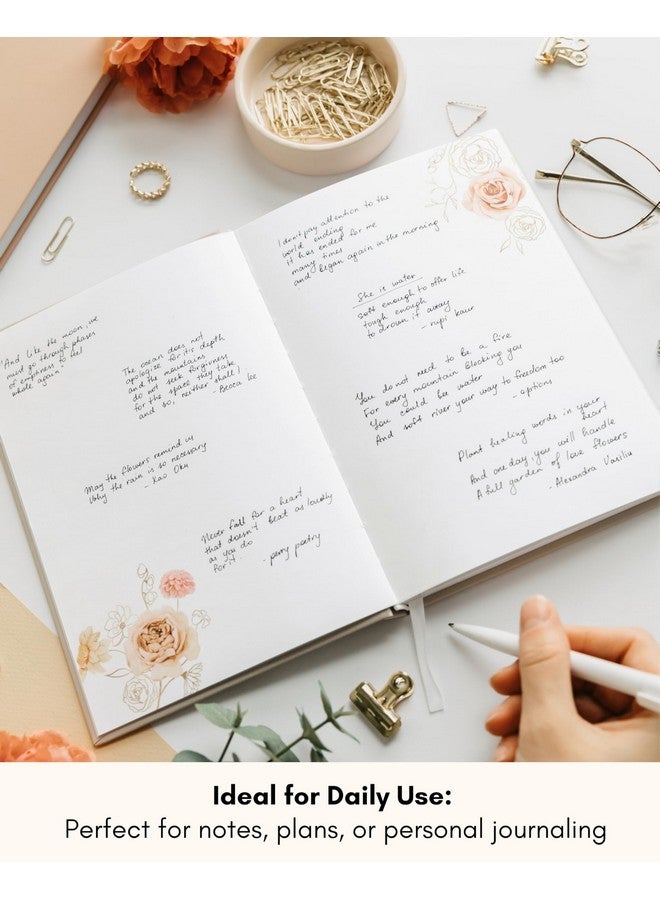 "And like the moon, we
must go through phases
of emptiness to feel
whole again"
The ocean does not
apologize for it's depth
and the mountains
do not seek forgivness
for the space they take
and so, neither shall I
- Becca Lee
May the flowers remind us
Why the rain is so necessary
- Xao Oku
Never fall for a heart
that doesn't beat as loudly
as you do
for it.
- perry poetry
I don't pay attention to the
world ending
it has ended for me
many times
and began again in the morning
She is water
soft enough to offer life
tough enough
to drown it away
- rupi kaur
You do not need to be a fire
For every mountain blocking you
You could be water
And soft river your way to freedom too
- options
Plant healing words in your
heart
And one day you will handle
A full garden of love flowers
- Alexandra Vasiliu
Ideal for Daily Use:
Perfect for notes, plans, or personal journaling